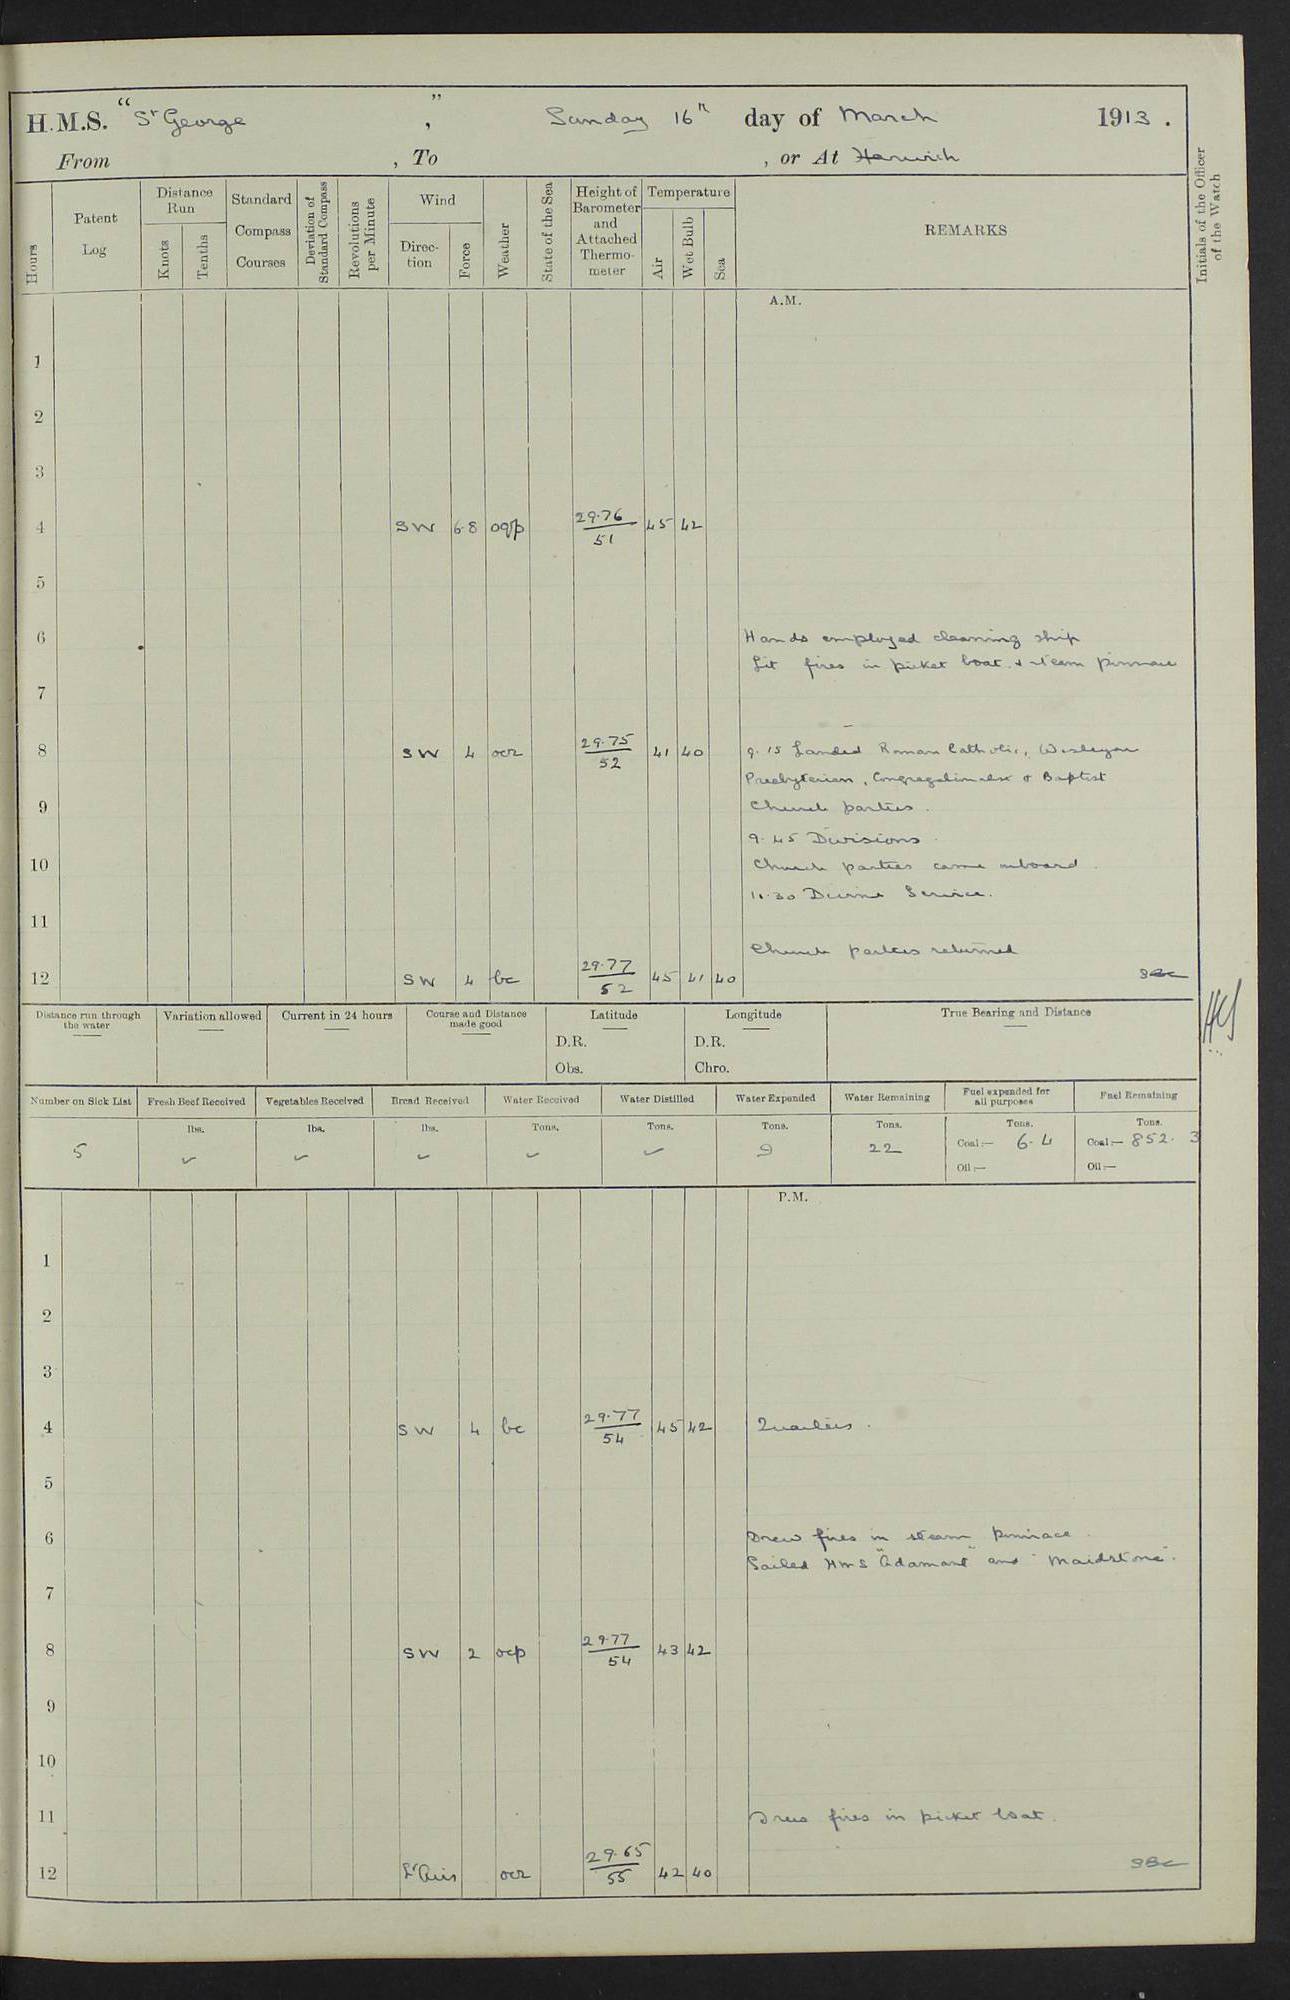 H.M.S. "St George", Sunday 16th day of March 1913.
From , To , or At Harwich
Hours
Patent Log
Distance Run
Knots
Tenths
Standard Compass Courses
Deviation of Standard Compass
Revolutions per Minute
Wind
Direction
Force
Weather
State of the Sea
Height of Barometer and Attached Thermometer
Temperature
Air
Wet Bulb
Sea
REMARKS
Initials of the Officer of the Watch
A.M.
1
2
3
4 SW 6.8 oqp 29.76/51 45 42
5
6 Hands employed cleaning ship
Lit fires in picket boat & steam pinnace
7
8 SW 4 ocr 29.75/52 41 40 9.15 Landed Roman Catholic, Wesleyan
Presbyterian, Congregationalist & Baptist
9 Church parties.
9.45 Divisions
10 Church parties came onboard
10.30 Divine Service.
11
Church parties returned
12 SW 4 bc 29.77/52 45 41 40
Distance run through the water
Variation allowed
Current in 24 hours
Course and Distance made good
Latitude
D.R.
Obs.
Longitude
D.R.
Chro.
True Bearing and Distance
Number on Sick List
Fresh Beef Received
Vegetables Received
Bread Received
Water Received
Water Distilled
Water Expended
Water Remaining
Fuel expended for all purposes
Fuel Remaining
lbs. lbs. lbs. Tons. Tons. Tons. Tons. Tons. Tons.
5 9 22 Coal:— 6.4 Coal:— 852.3
Oil:— Oil:—
P.M.
1
2
3
4 SW 4 bc 29.77/54 45 42 Quarters.
5
6 Drew fires in steam pinnace.
Sailed HMS "Adamant" and "Maidstone".
7
8 SW 2 ocp 29.77/54 43 42
9
10
11 Drew fires in picket boat.
12 Lt Airs ocr 29.65/55 42 40